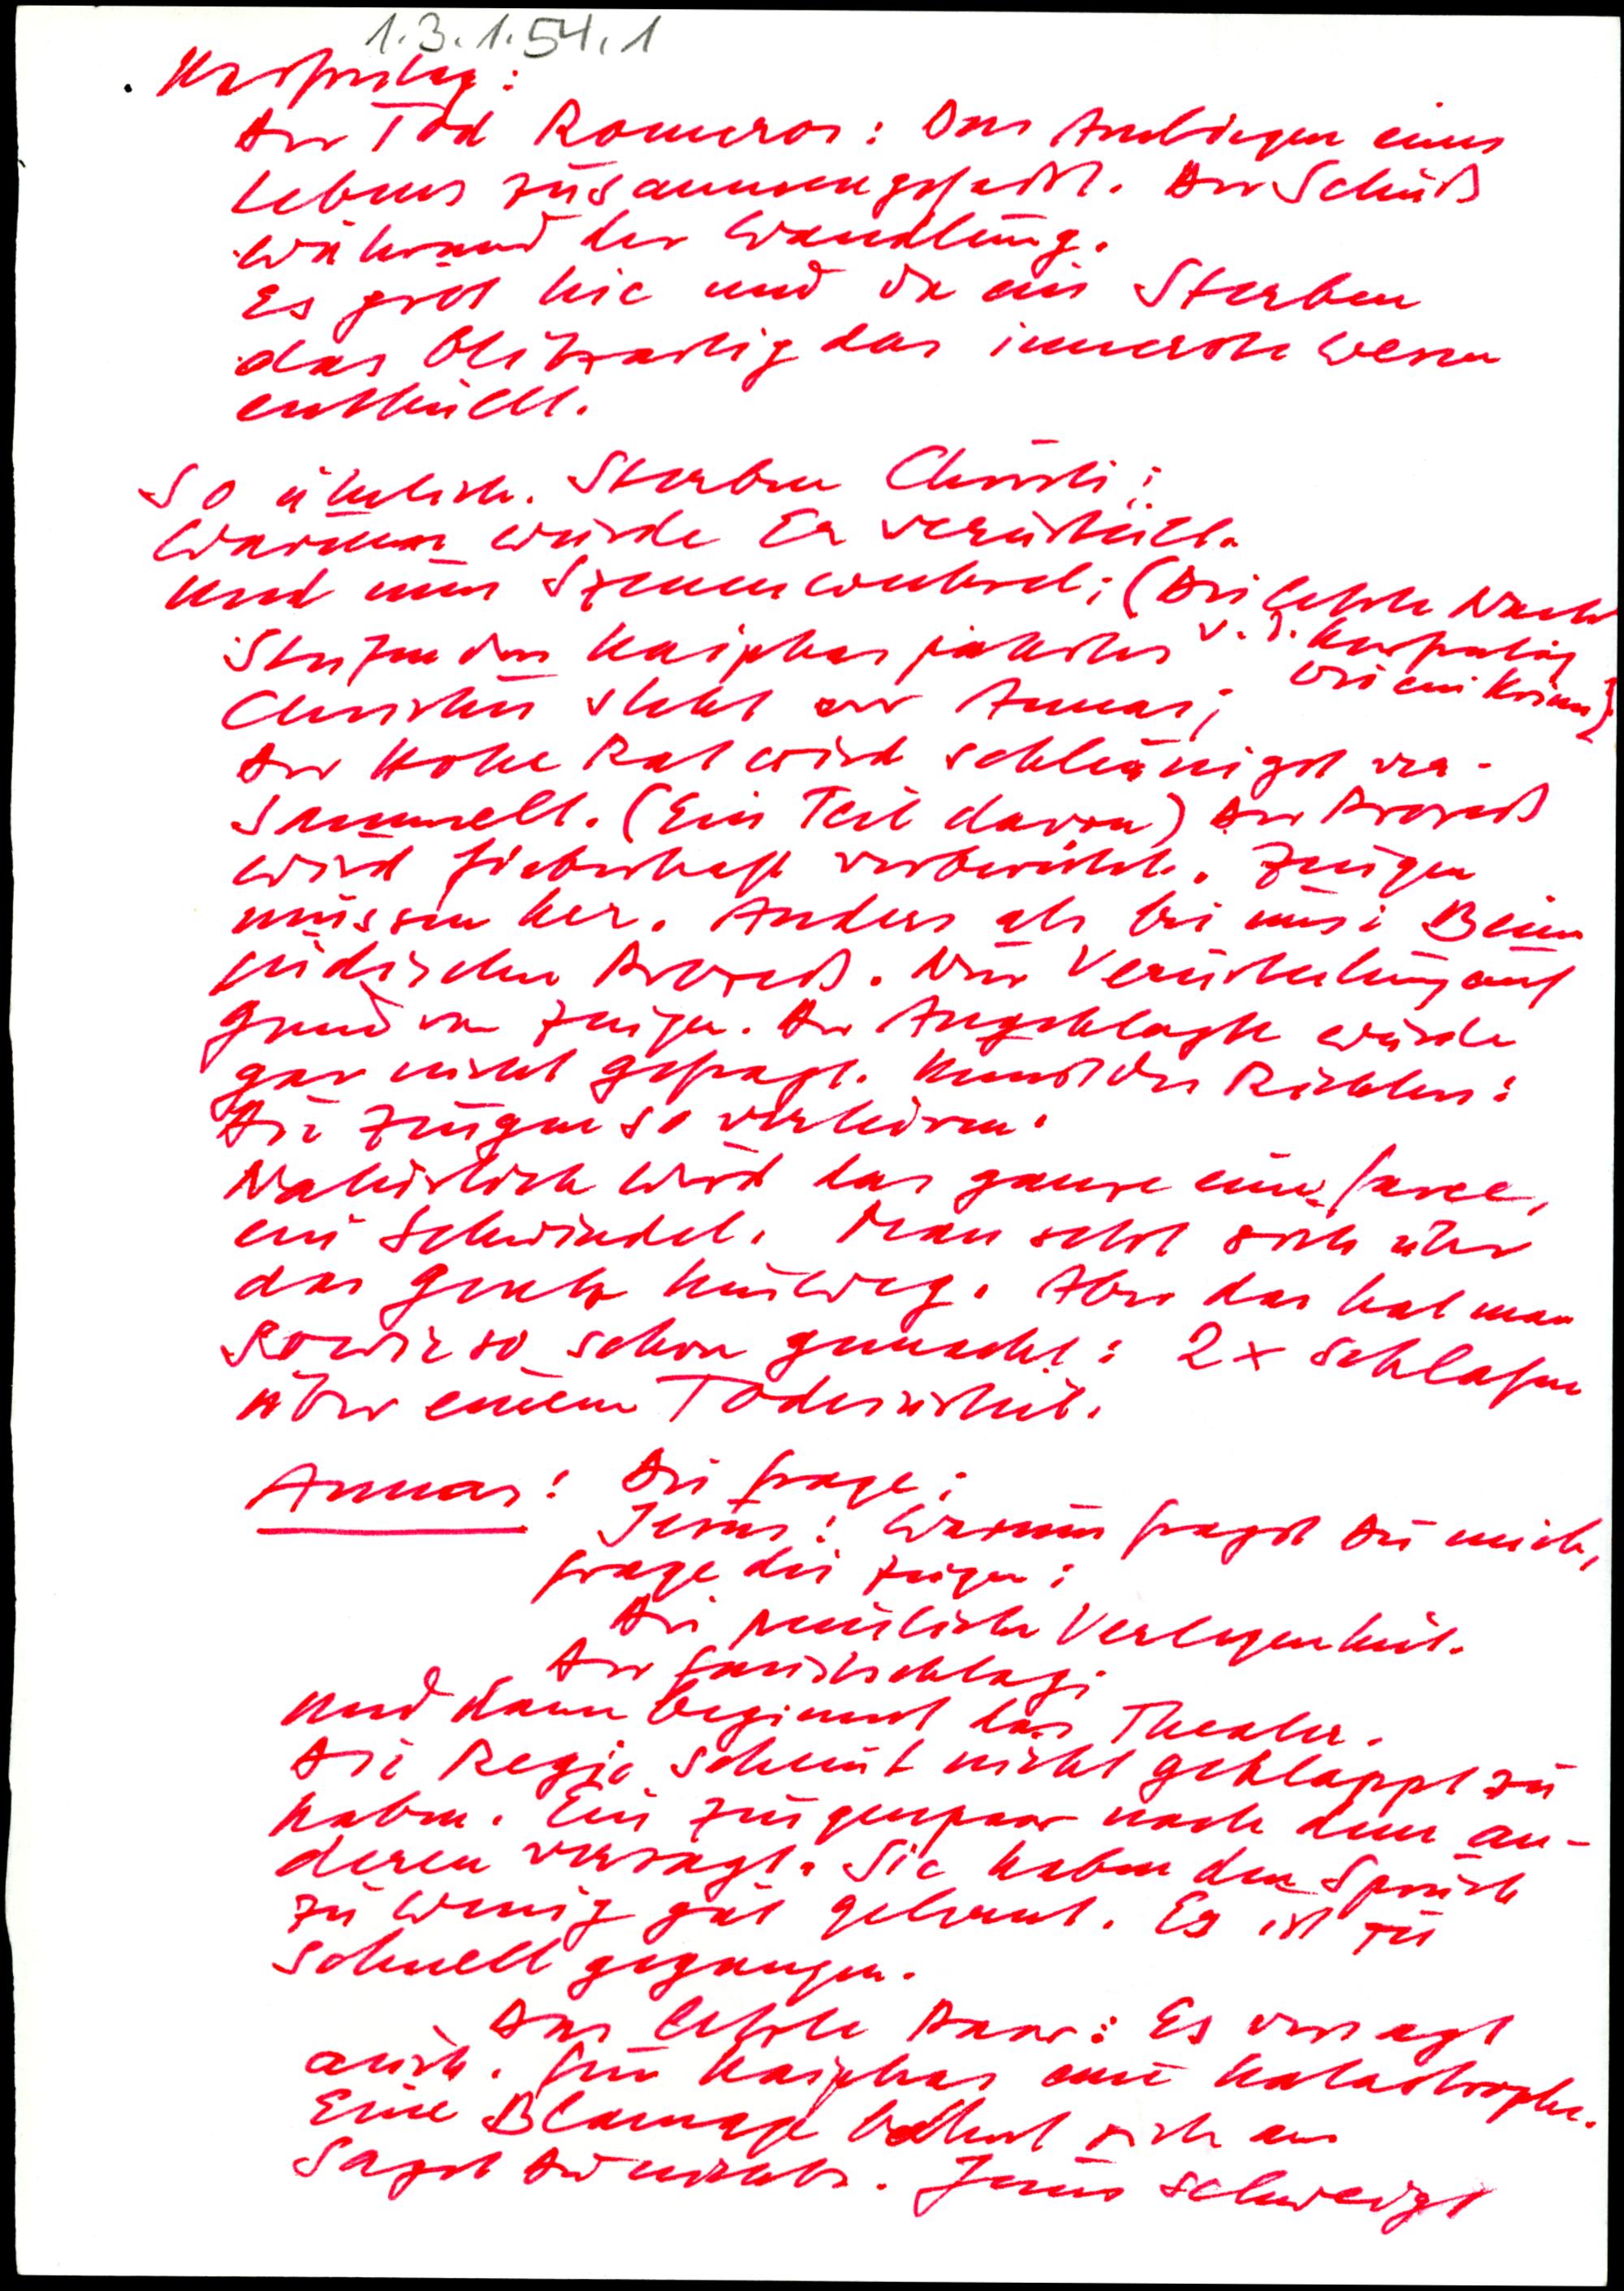 1.3.1.54.1
Karfreitag:
Der Tod Romeros: Das Anliegen eines
Lebens zusammengefasst. Der Schuß
während der Wandlung.
Es gibt hie und da ein Sterben
das blitzartig das innerste Wesen
enthüllt.
So ähnlich. Sterben Christi:
Warum wurde Er verurteilt.
Und nun Szenenwechsel: (Die letzte Nacht
v. d. Karfreitag
wie ein Krimi)
Stufen des Kaiphas
Christus steht vor Annas;
Der Hohe Rat wird schleunigst ver-
sammelt. (Ein Teil davon) Der Prozeß
wird fieberhaft vorbereitet. Zeugen
müssen her. Anders als bei uns: Beim
jüdischen Prozeß. Nur Verurteilung auf
Grund von Zeugen. Der Angeklagte wurde
gar nicht gefragt. Kunst des Richters:
Die Zeugen so verhören.
Natürlich wird das ganze eine Farce,
ein Schwindel. Man setzt sich über
das Gesetz hinweg. Aber das hat man
sowieso schon gemacht: 2x schlafen
über einem Todesurteil.
Annas: Die Frage:
Jesus: Warum fragst Du mich,
frage die Zeugen:
Die peinliche Verlegenheit.
Der Faustschlag.
Und dann beginnt das Theater.
Die Regie scheint nicht geklappt zu
haben. Ein Zeugenpaar nach dem an-
deren versagt. Sie haben den Spruch
zu wenig gut gelernt. Es ist zu
schnell gegangen.
Das letzte Paar: Es versagt
auch. Für Kaiphas eine Katastrophe.
Eine Blamage bahnt sich an
Sagst Du nichts. Jesus schweigt